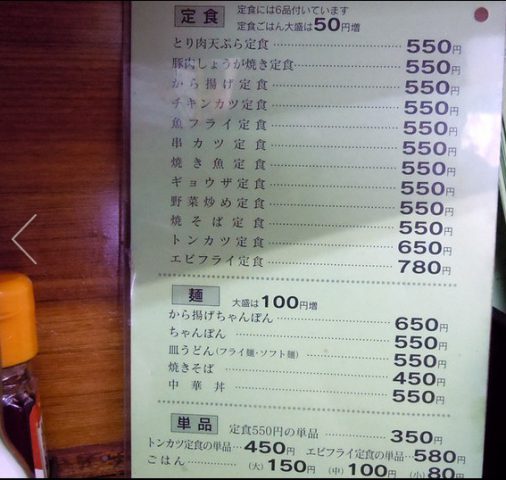 定食 定食には6品付いています
定食ごはん大盛は50円増
とり肉天ぷら定食 550円
豚肉しょうが焼き定食 550円
から揚げ定食 550円
チキンカツ定食 550円
魚フライ定食 550円
串カツ定食 550円
焼き魚定食 550円
ギョウザ定食 550円
野菜炒め定食 550円
焼そば定食 550円
トンカツ定食 650円
エビフライ定食 780円
麺 大盛は100円増
から揚げちゃんぽん 650円
ちゃんぽん 550円
皿うどん(フライ麺・ソフト麺) 550円
焼きそば 450円
中華丼 550円
単品 定食550円の単品 350円
トンカツ定食の単品 450円 エビフライ定食の単品 580円
ごはん (大)150円 (中)100円 (小)80円